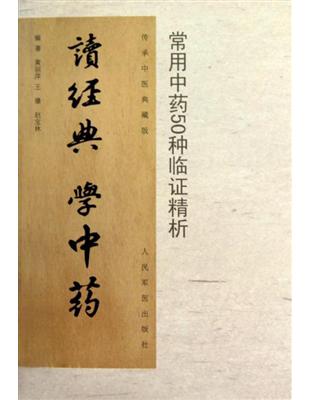 常用中药50种临证精析
传承中医典藏版
人民军医出版社
讀經典 學中药
编著 黄丽萍 王骧 赵宝林